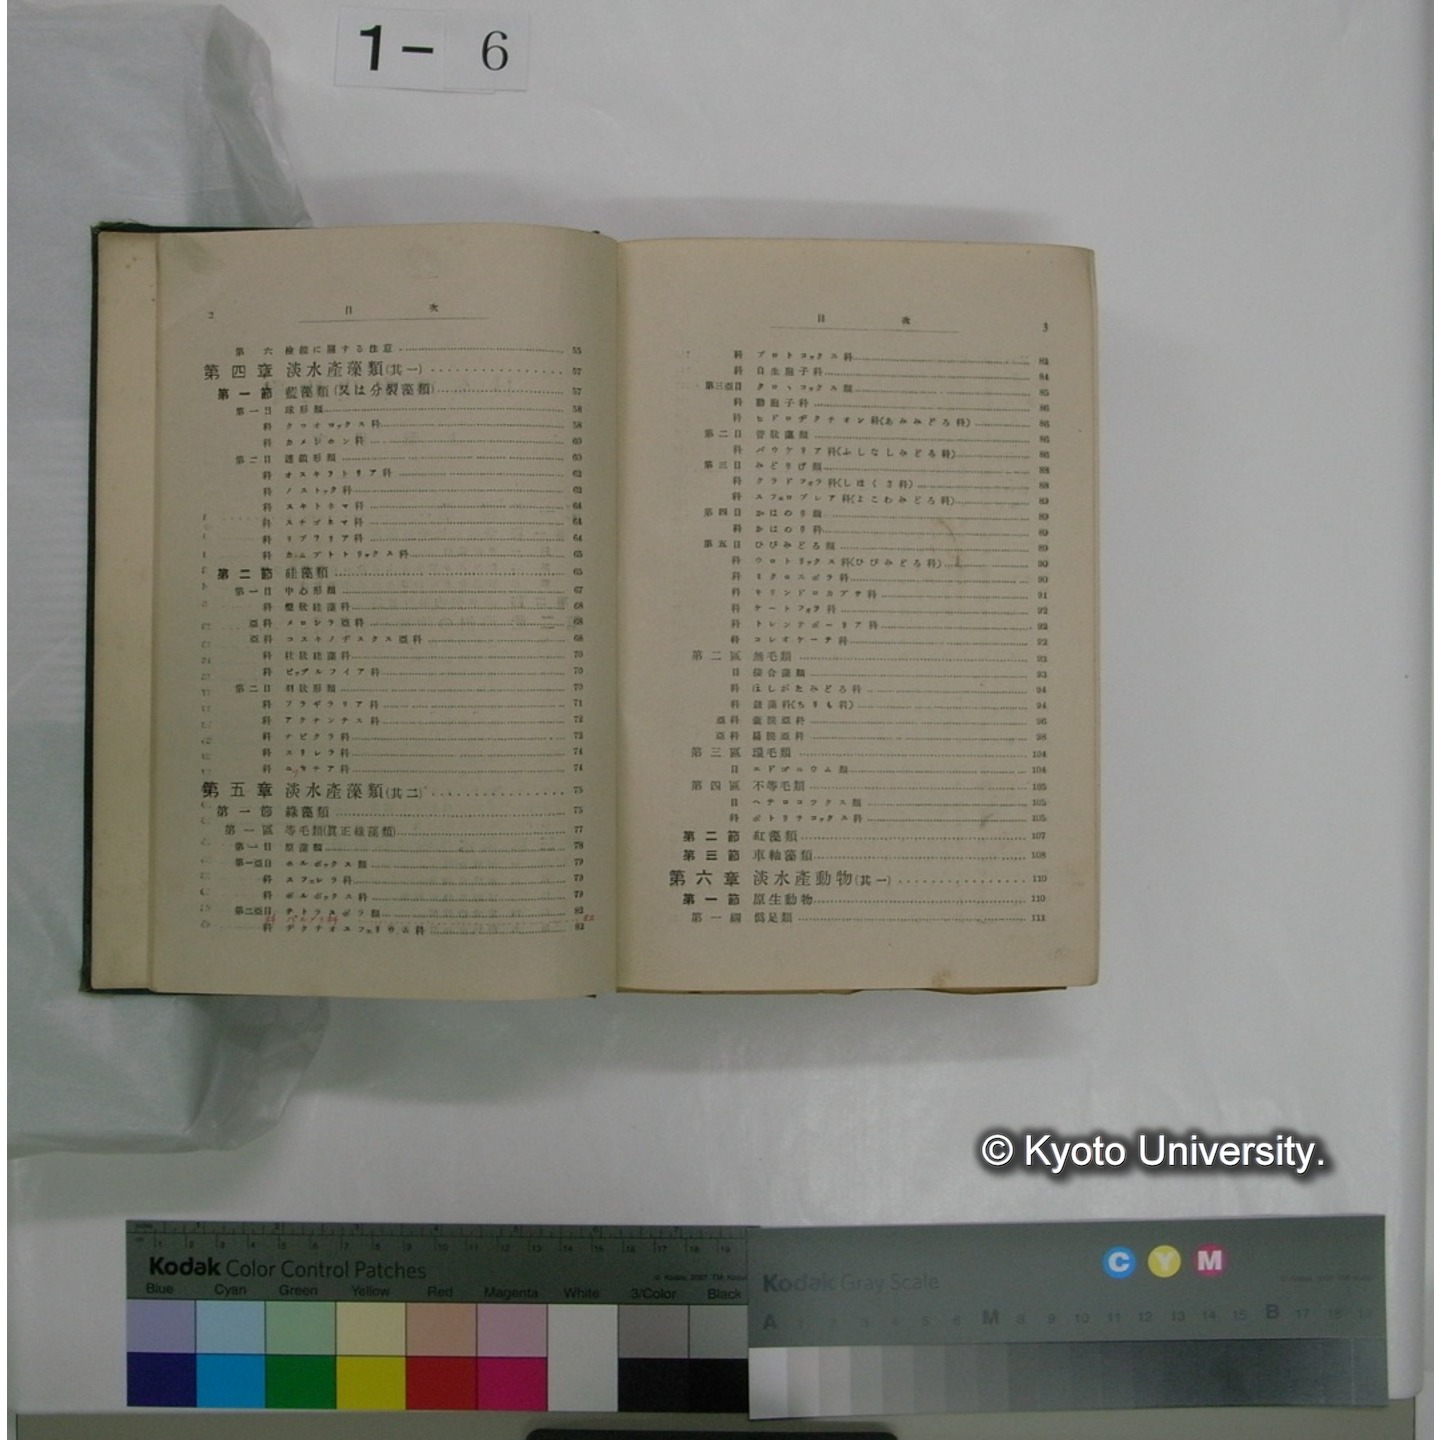 1- 6
2 目 次
第 六 検鏡に關する注意 55
第 四 章 淡水產藻類(其一) 57
第 一 節 藍藻類(又は分裂藻類) 57
第一目 球形類 58
科 クロオコックス科 58
科 カメシホン科 60
第二目 連鎖形類 60
科 オスキラトリア科 62
科 ノストック科 62
科 スキトネマ科 64
科 スチゴネマ科 64
科 リブラリア科 64
科 カムプトトリックス科 65
第 二 節 硅藻類 65
第一目 中心形類 67
科 盤狀硅藻科 68
亞科 メロシラ亞科 68
亞科 コスキノデスクス亞科 68
科 柱狀硅藻科 70
科 ビッデルフイア科 70
第二目 羽狀形類 70
科 フラギラリア科 71
科 アクナンテス科 72
科 ナビクラ科 73
科 スリレラ科 74
科 ニッチア科 74
第 五 章 淡水產藻類(其二) 75
第 一 節 綠藻類 75
第 一 區 等毛類(眞正綠藻類) 77
第一目 原藻類 78
第一亞目 ボルボックス類 79
科 スフェレラ科 79
科 ボルボックス科 79
第二亞目 テトラスポラ類 82
科 パルメラ科 82
科 デクテオスフェリウム科 83
目 次 3
科 プロトコックス科 83
科 自生胞子科 84
第三亞目 クロヽコックス類 86
科 動胞子科 86
科 ヒドロヂクチオン科(あみみどろ科) 86
第二目 管狀藻類 86
科 バウケリア科(ふしなしみどろ科) 86
第三目 みどりげ類 88
科 クラドフォラ科(しほくさ科) 88
科 スフェロプレア科(よこわみどろ科) 89
第四目 かはのり類 89
科 かはのり科 89
第五目 ひびみどろ類 89
科 ウロトリックス科(ひびみどろ科) 90
科 ミクロスポラ科 90
科 キリンドロカプサ科 91
科 ケートフォラ科 92
科 トレンテポーリア科 92
科 コレオケーテ科 92
第 二 區 無毛類 93
目 接合藻類 93
科 ほしがたみどろ科 94
科 鼓藻科(ちりも科) 94
亞科 96
亞科 98
第 三 區 環毛類 104
目 エドゴニウム類 104
第 四 區 不等毛類 105
目 ヘテロコックス類 105
科 ボトリヲコックス科 105
第 二 節 紅藻類 107
第 三 節 車軸藻類 108
第 六 章 淡水產動物(其一) 110
第 一 節 原生動物 110
第 一 綱 僞足類 111
© Kyoto University.
Kodak Color Control Patches
Blue Cyan Green Yellow Red Magenta White 3/Color Black
Kodak Gray Scale
C Y M
A 1 2 3 4 5 6 M 8 9 10 11 12 13 14 15 B 17 18 19